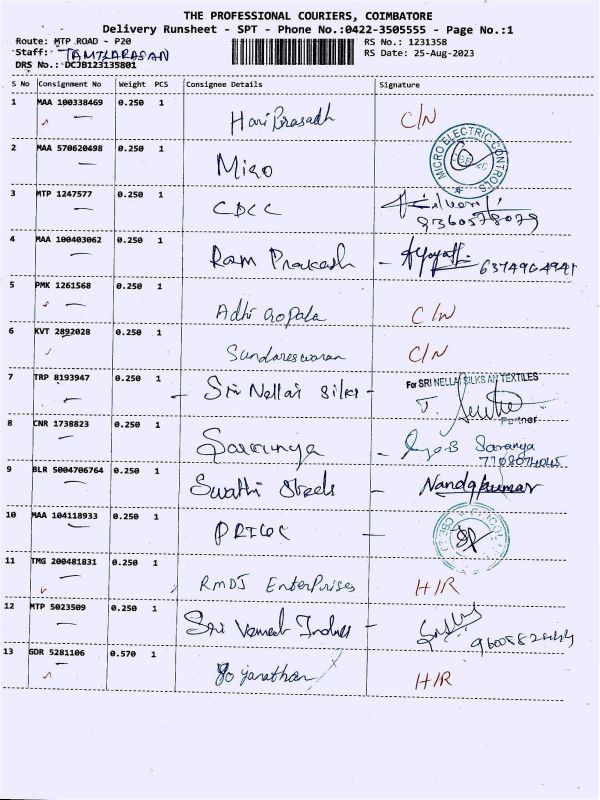 THE PROFESSIONAL COURIERS, COIMBATORE
Delivery Runsheet - SPT - Phone No.:0422-3505555 - Page No.:1
Route: MTP ROAD - P20 RS No.: 1231358
Staff: RS Date: 25-Aug-2023
DRS No.: DCJB123135801
S No Consignment No Weight PCS Consignee Details Signature
1 MAA 100338469 0.250 1 Hari Prasadh C/N
2 MAA 570620498 0.250 1 Miro MICRO ELECTRIC CONTROLS
3 MTP 1247577 0.250 1 CDCC 9360578079
4 MAA 100403062 0.250 1 Ram Prakash -
5 PMK 1261568 0.250 1 Adhi Gopala C/N
6 KVT 2892028 0.250 1 Sundareswaran C/N
7 TRP 8193947 0.250 1 - Sri Nellai Silks - For SRI NELLAI SILKS AN TEXTILES
Partner
8 CNR 1738823 0.250 1 Saranya - Saranya
9 BLR 5004706764 0.250 1 Swathi Steels - Nandakumar
10 MAA 104118933 0.250 1 PRICOL -
11 TMG 200481831 0.250 1 RMDJ Enterprises H/R
12 MTP 5023509 0.250 1 Sri -
13 GDR 5281106 0.570 1 H/R